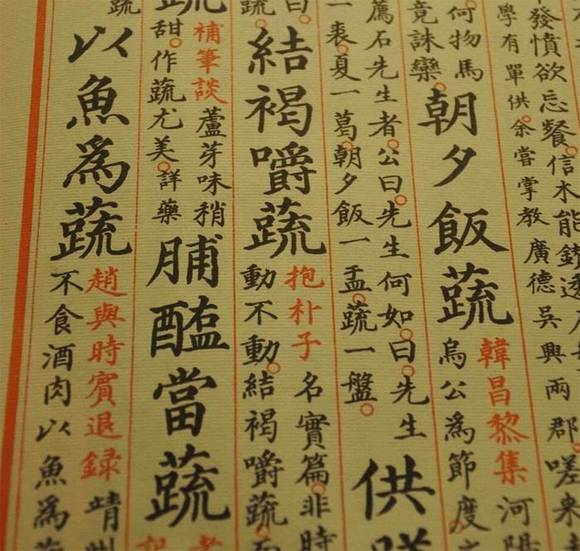 發憤欲忘餐信水能
學有單供余嘗掌教廣德吳興兩郡嗟來
何物馬
竟誅欒
朝夕飯蔬
韓昌黎集河陽
烏公為節度
薦石先生者公曰先生何如曰先生
一裘夏一葛朝夕飯一盂蔬一盤
供
曰
蔬
結褐嚼蔬
抱朴子名實篇非時
動不動結褐嚼蔬
補筆談蘆芽味稍
甜作蔬尤美詳藥
脯醢當蔬
蔬
以魚為蔬
趙與時賓退録靖州
不食酒肉以魚為